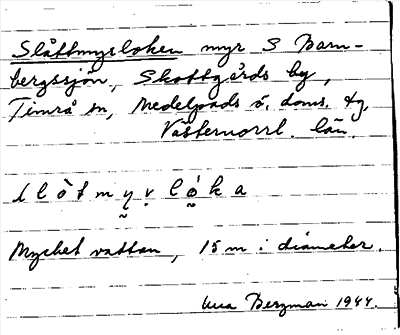 Slåttmyrloken myr S Barn-
bergssjön, Skottgårds by,
Timrå sn, Medelpads ö. doms. tg,
Västernorrl. län.
s l ò t m y v l ó k a
Mycket vatten, 15 m i diameter.
Bergman 1944.